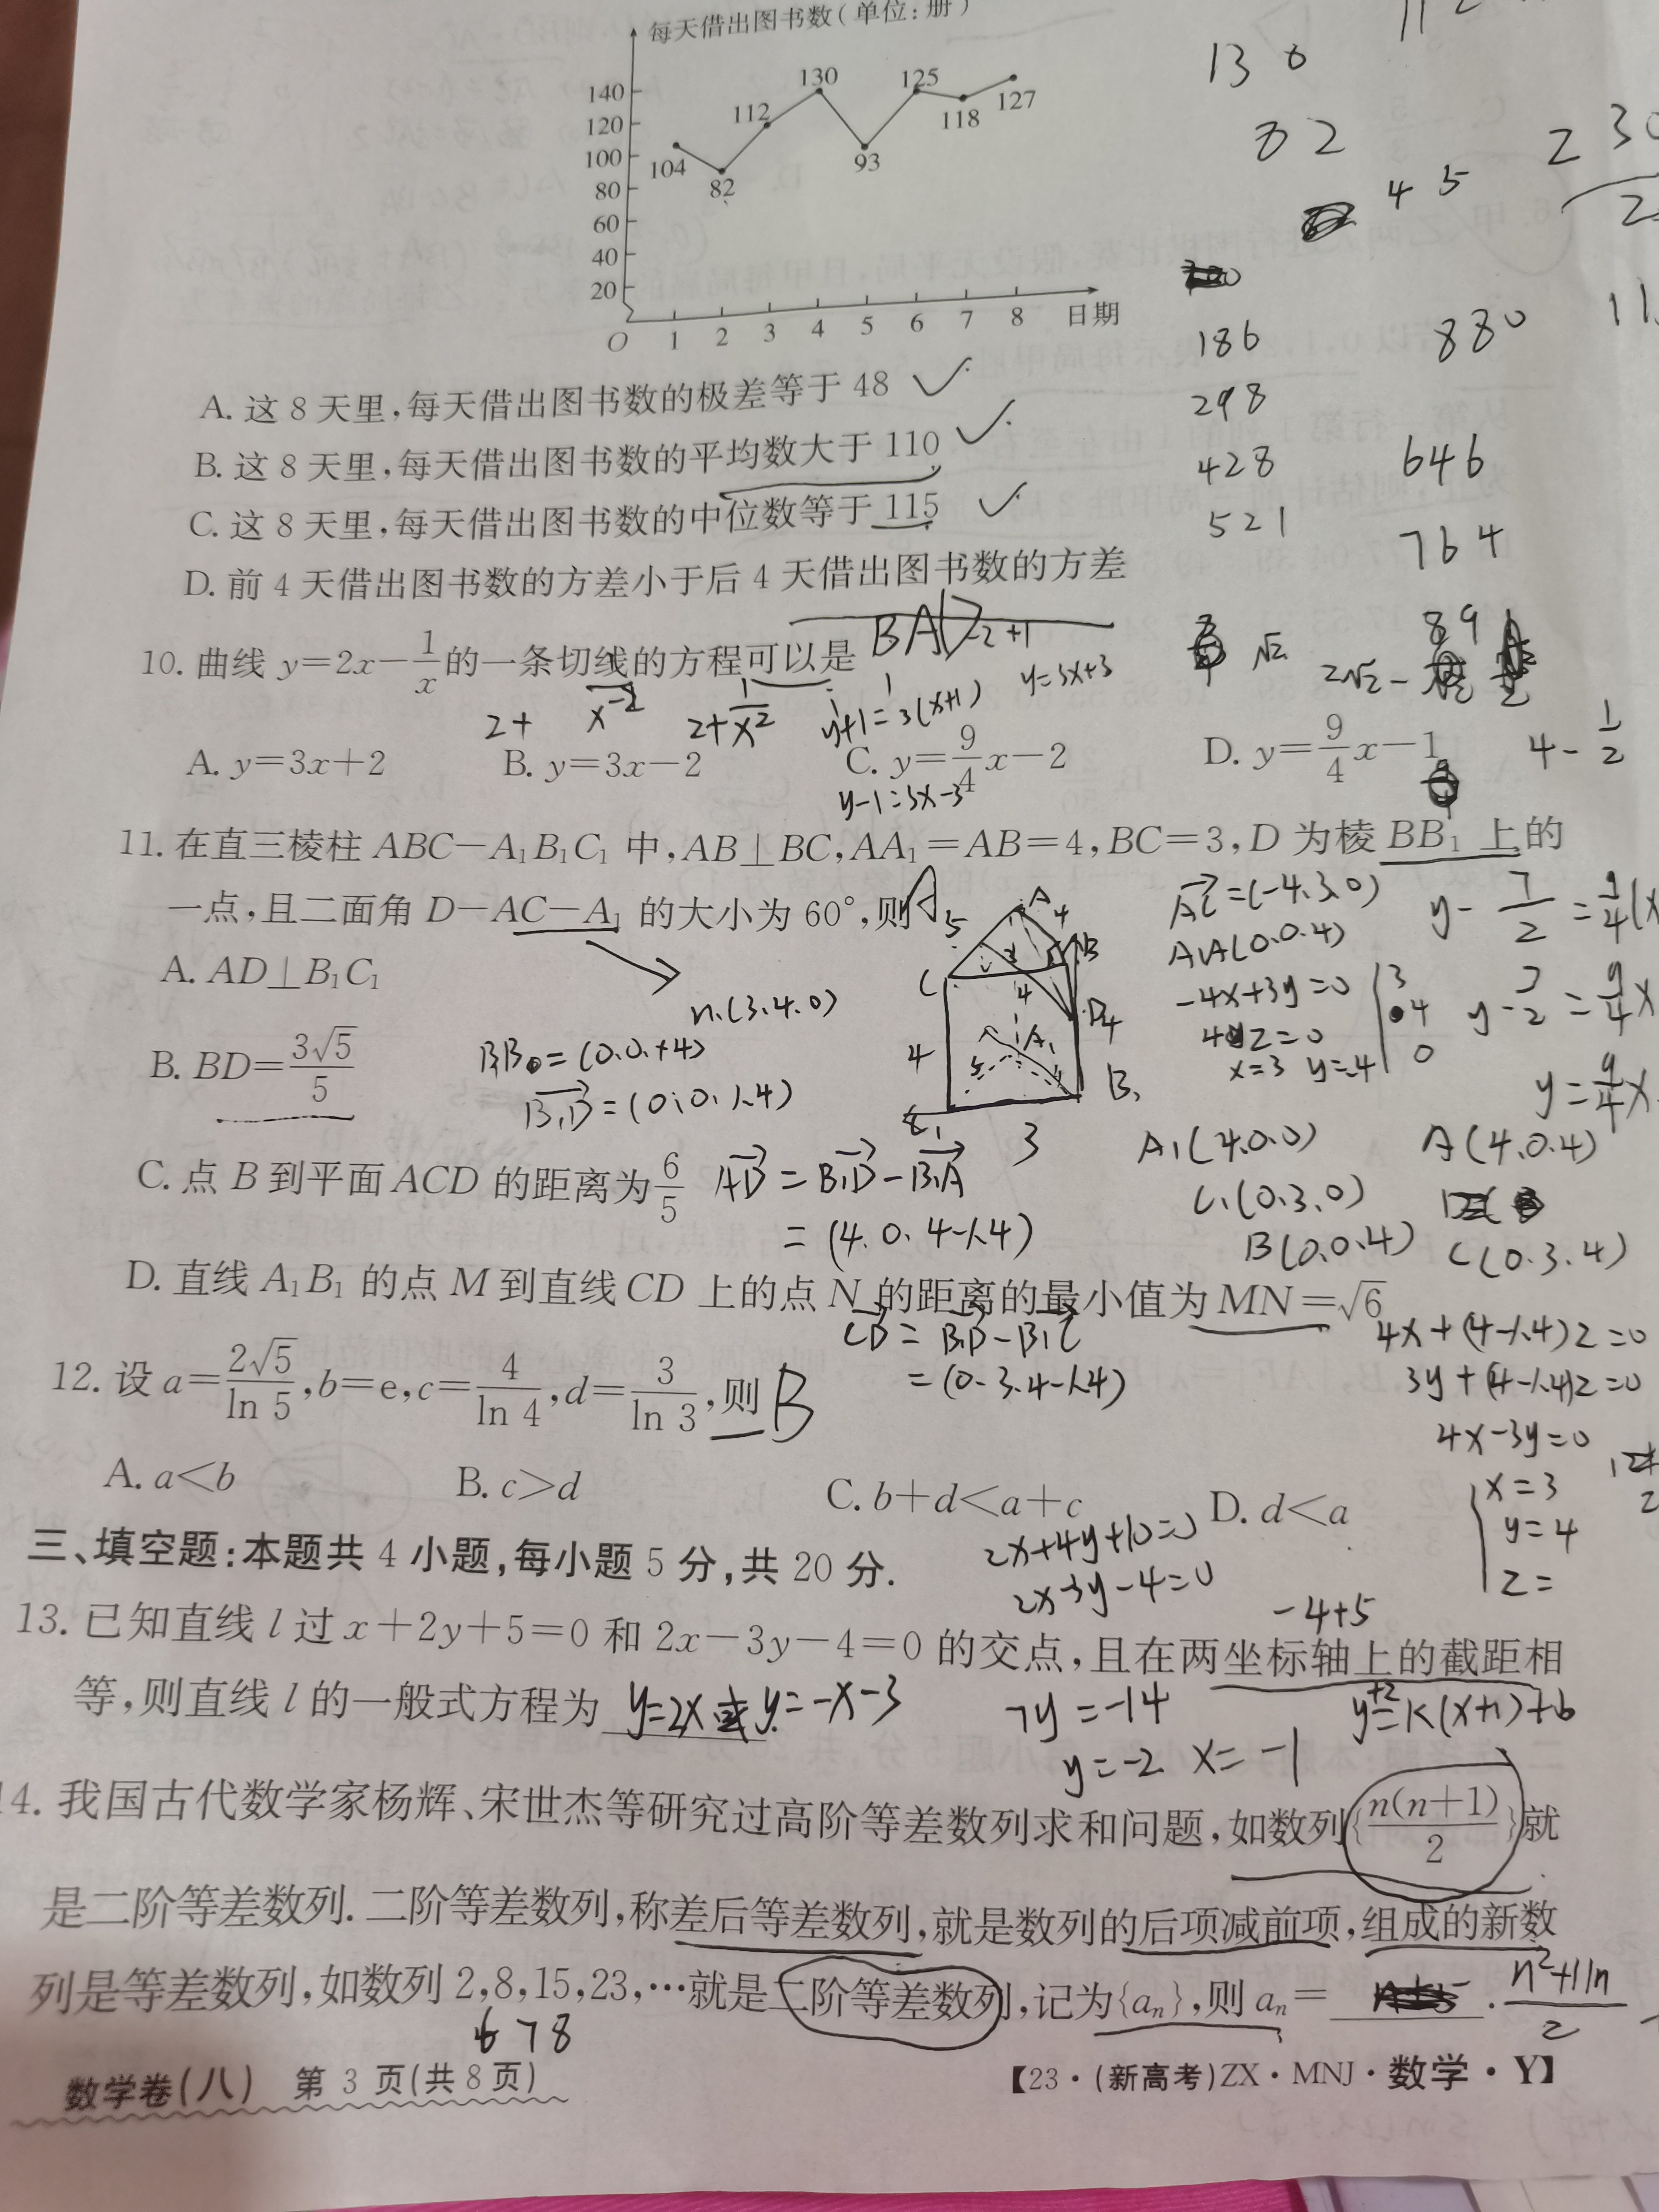 每天借出图书数(单位:册)
140
120
100
80
60
40
20
104
82
112
130
93
125
118
127
O 1 2 3 4 5 6 7 8 日期
A. 这 8 天里,每天借出图书数的极差等于 48 ✓
B. 这 8 天里,每天借出图书数的平均数大于 110 ✓
C. 这 8 天里,每天借出图书数的中位数等于 115 ✓
D. 前 4 天借出图书数的方差小于后 4 天借出图书数的方差
130
82
45
186
298
428
521
880
646
764
891
10. 曲线 y=2x-1/x 的一条切线的方程可以是
2+1/x²
y+1=3(x+1)
y=3x+3
√2
A. y=3x+2 B. y=3x-2 C. y=9/4x-2 D. y=9/4x-1
4-1/2
y-1=3x-3
11. 在直三棱柱 ABC-A₁B₁C₁ 中,AB⊥BC,AA₁=AB=4,BC=3,D 为棱 BB₁ 上的
一点,且二面角 D-AC-A₁ 的大小为 60°,则 A
A. AD⊥B₁C₁
B. BD=3√5/5
C. 点 B 到平面 ACD 的距离为 6/5
D. 直线 A₁B₁ 的点 M 到直线 CD 上的点 N 的距离的最小值为 MN=√6
n₁(3.4.0)
B₁D=(0,0,λ4)
AC=(-4.3.0)
A₁A(0.0.4)
-4x+3y=0
x=3 y=4
AD=B₁D-B₁A
=(4.0.4-λ4)
A₁(4.0.0)
A(4.0.4)
C₁(0.3.0)
B(0.0.4)
C(0.3.4)
CD=B₁D-B₁C
=(0-3.4-λ4)
4x+(4-λ4)z=0
3y+(4-λ4)z=0
4x-3y=0
x=3
y=4
z=
12. 设 a=2√5/ln 5,b=e,c=4/ln 4,d=3/ln 3,则 B
A. a<b B. c>d C. b+d<a+c D. d<a
三、填空题:本题共 4 小题,每小题 5 分,共 20 分.
2x+4y+10=0
2x-3y-4=0
-4+5
13. 已知直线 l 过 x+2y+5=0 和 2x-3y-4=0 的交点,且在两坐标轴上的截距相
等,则直线 l 的一般式方程为 y=2x或y=-x-3
7y=-14
y=-2 x=-1
y+2=k(x+1)+b
14. 我国古代数学家杨辉、宋世杰等研究过高阶等差数列求和问题,如数列{n(n+1)/2}就
是二阶等差数列. 二阶等差数列,称差后等差数列,就是数列的后项减前项,组成的新数
列是等差数列,如数列 2,8,15,23,…就是二阶等差数列,记为{aₙ},则 aₙ= . n²+11n/2
6 7 8
数学卷(八) 第 3 页(共 8 页)
【23·(新高考)ZX·MNJ·数学·Y】